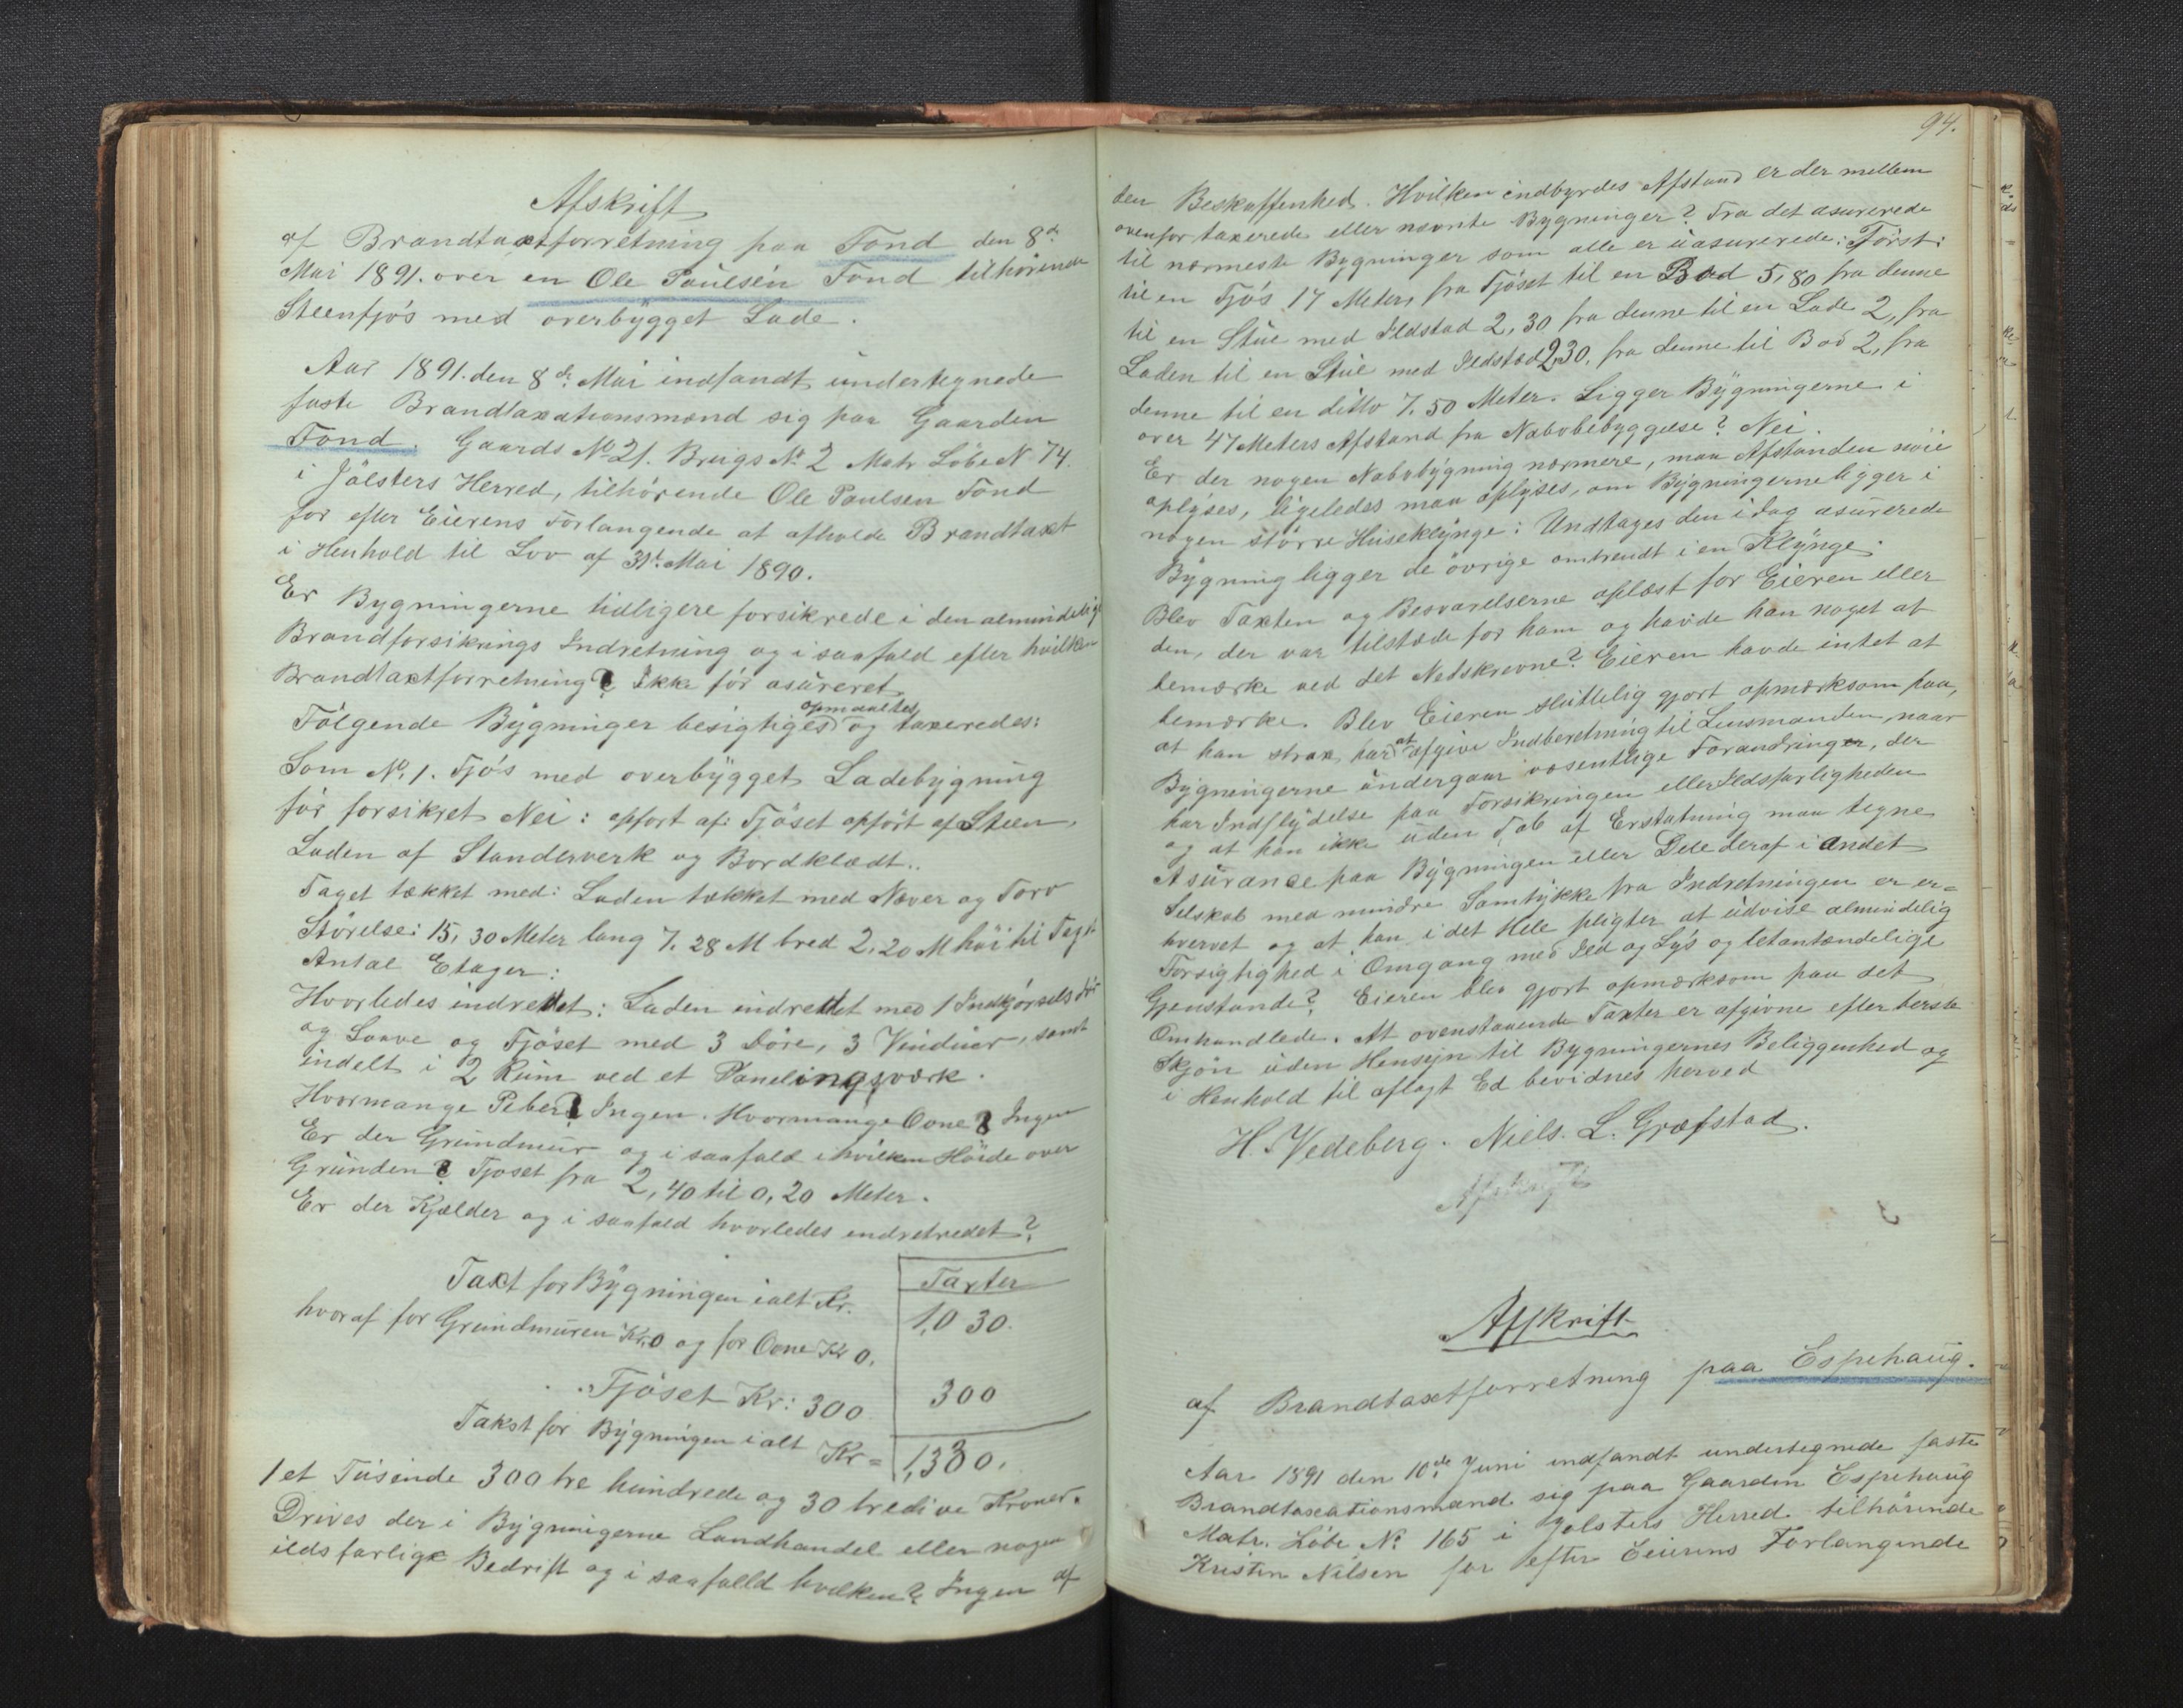 Afskrift
af Brandtaxtforretning paa Fond den 8de
Mai 1891. over en Ole Paulsen Fond tilhørende
Steenfjøs med overbygget Lade.
Aar 1891. den 8de Mai indfandt undertegnede
faste Brandtaxationsmænd sig paa Gaarden
Fond. Gaards No 21. Brugs No 2 Matr Løbe N 74.
i Jølsters Herred, tilhørende Ole Paulsen Fond
for efter Eierens Forlangende at afholde Brandtaxt
i Henhold til Lov af 31te Mai 1890.
Er Bygningerne tidligere forsikrede i den almindelige
Brandforsikrings Indretning og i saafald efter hvilken
Brandtaxtforretning? Ikke før asureret
Følgende Bygninger besigtiges opmaaltes og taxeredes:
Som No. 1. Fjøs med overbygget Ladebygning
før forsikret Nei: opført af: Fjøset opført af Steen,
Laden af Standerverk og Bordklædt..
Taget tækket med: Laden tækket med Næver og Torv
Størelse: 15,30 Meter lang 7.28 M bred 2.20 M høi til Tagt
Antal Etager:
Hvorledes indrettet: Laden indrettet med 1 Indkjørselsdør
og Laave og Fjøset med 3 Døre, 3 Vinduer, samt
indelt i 2 Rum ved et Panelingsværk.
Hvormange Piber? Ingen. Hvormange Ovne? Ingen
Er der Grundmur og i saafald i hvilken Høide over
Grunden? Fjøset fra 2,40 til 0,20 Meter.
Er der Kjælder og i saafald hvorledes endretredet?
Taxter
Taxt for Bygningen ialt Kr. 1,030.
hvoraf for Grundmuren Kr. 0 og for Ovne Kr 0.
Fjøset Kr: 300 300
Takst for Bygningen ialt Kr = 1,330.
1 et Tusinde 300 tre hundrede og 30 tredive Kroner.
Drives der i Bygningerne Landhandel eller nogen
ildsfarlige Bedrift og i saafalld hvilken? Ingen af
94.
den Beskaffenhed. Hvilken indbyrdes Afstand er der mellem
ovenfor taxerede eller nævnte Bygninger? Fra det asurerede
til nærmeste Bygninger som alle er uasurerede: Først:
til en Fjøs 17 Meter, fra Fjøset til en Bod 5,80 fra denne
til en Stue med Ildstad 2,30 fra denne til en Lade 2, fra
Laden til en Stue med Ildsted 2,30. fra denne til Bod 2, fra
denne til en ditto 7.50 Meter. Ligger Bygningerne i
over 47 Meters Afstand fra Nabobebyggelse? Nei.
Er der nogen Nabobygning nærmere, maa Afstanden nøie
oplyses, ligeledes maa oplyses, om Bygningerne ligger i
nogen større Huseklynge: Undtages den i dag asurerede
Bygning ligger de øvrige omtrendt i en Klynge.
Blev Taxten og Besvarelserne oplæst for Eieren eller
den, der var tilstæde for ham og havde han noget at
bemærke ved det Nedskrevne? Eieren havde intet at
bemærke. Blev Eieren sluttelig gjort opmærksom paa,
at han strax har at afgive Indberetning til Lensmanden, naar
Bygningerne undergaar væsentlige Forandringer, der
har Indflydelse paa Forsikringen eller Ildsfarligheden
og at han ikke uden Tab af Erstatning maa tegne
Asurance paa Bygningen eller Dele deraf i andet
Selskab med mindre Samtykke fra Indretningen er er=
hvervet og at han i det Hele pligter at udvise almindelig
Forsigtighed i Omgang med Ild og Lys og letantændelige
Gjenstande? Eieren blev gjort opmærksom paa det
Omhandlede. At ovenstaaende Taxter er afgivne efter beste
Skjøn uden Hensyn til Bygningernes Beliggenhed og
i Henhold til aflagt Ed bevidnes herved
H. Vedeberg. Niels. L. Græfstad.
Afskrift
Affkrift
af Brandtaxtforretning paa Espehaug.
Aar 1891 den 10de Juni indfandt undertegnede faste
Brandtaxationsmænd sig paa Gaarden Espehaug
Matr. Løbe No 165 i Jolsters Herred tilhørende
Kristen Nilsen for efter Eierens Forlangende